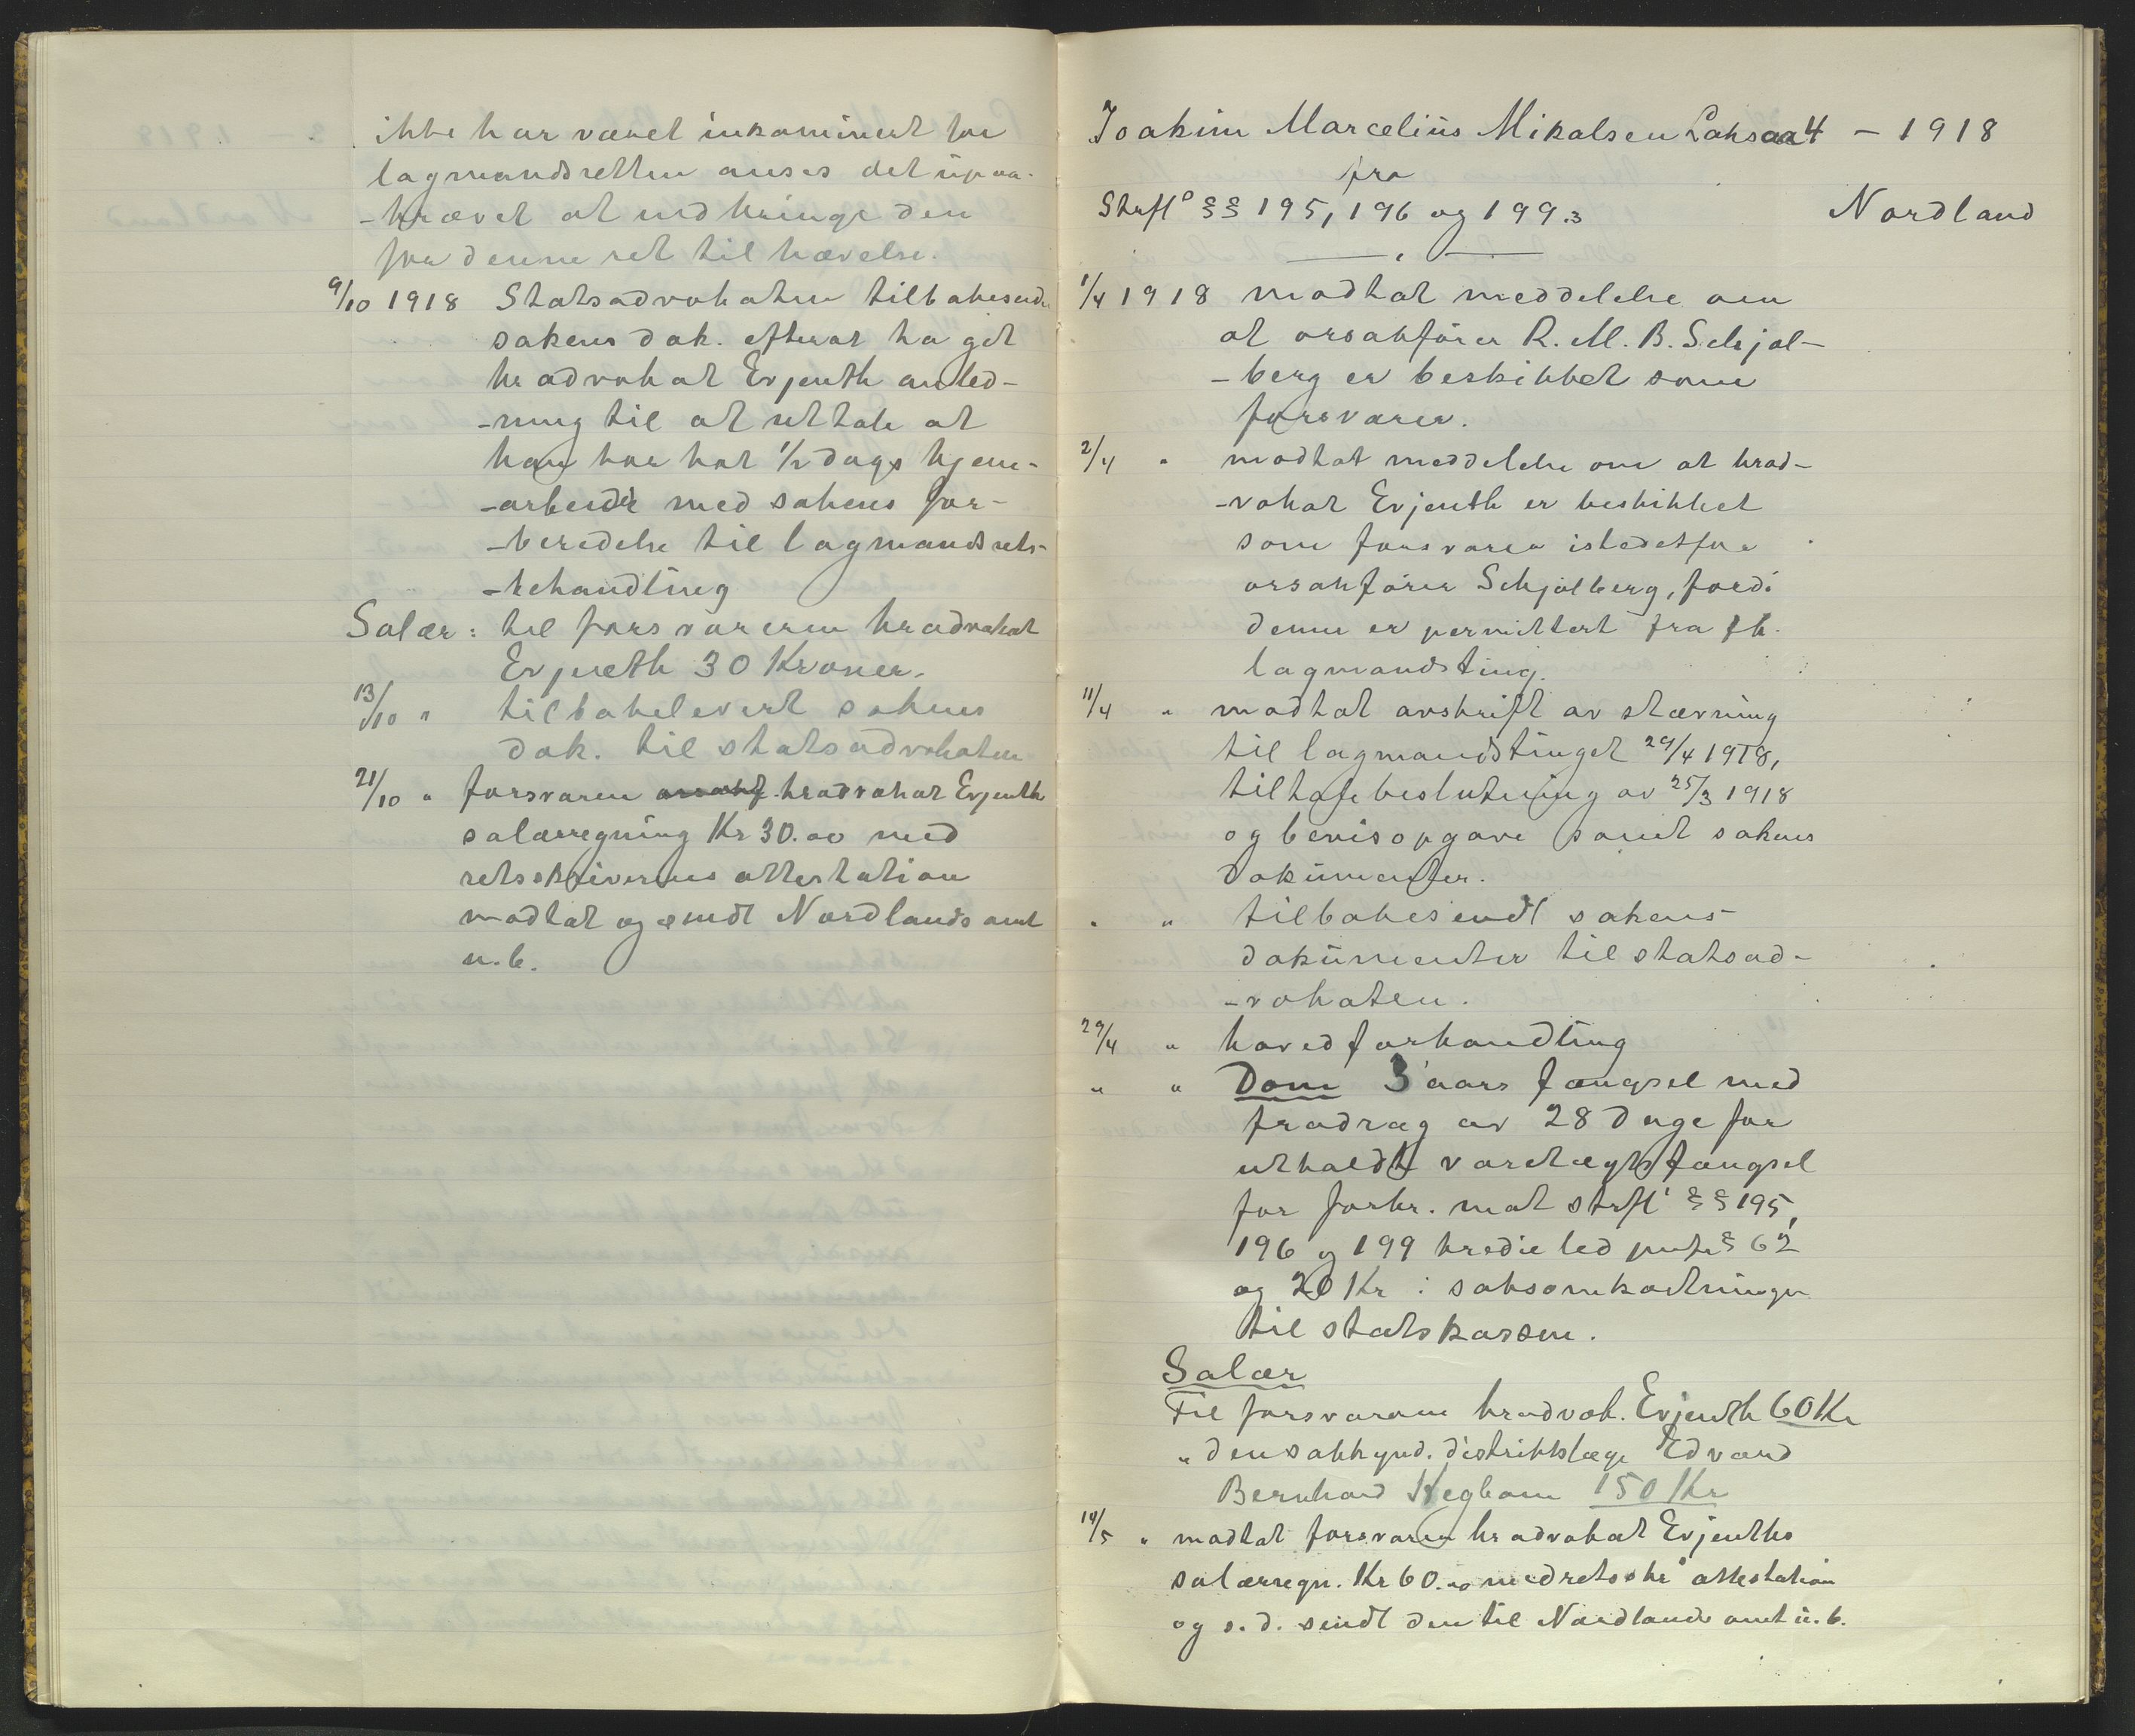 ikke har været inkaminert for
lagmandsretten anses det upaa-
-krævet at indbringe den
for denne ret til hævelse.
9/10 1918 Statsadvokaten tilbakesendt
sakens dok. efterat ha git
hr advokat Evjenth anled-
-ning til at uttale at
han har hat 1/2 dags hjem-
-arbeide med sakens for-
-beredelse til lagmandsrets-
-behandling
Salær: til forsvareren hradvokat
Evjenth 30 Kroner.
13/10 " tilbakelevert sakens
dok. til statsadvokaten
21/10 " forsvareren hradvokat Evjenth
salærregning Kr 30.00 med
retsskriverens attestation
modtat og sendt Nordlands amt
u.b.
Joakim Marcelius Mikalsen Laksaa 4 - 1918
fra
Strfl° §§ 195, 196 og 199.3 Nordland
1/4 1918 modtat meddelelse om
at orsakfører R. M. B. Schjøl-
-berg er beskikket som
forsvarer.
2/4 " modtat meddelelse om at hrad-
-vokat Evjenth er beskikket
som forsvarer istedetfor
orsakfører Schjølberg, fordi
denne er permittert fra
lagmandsting.
11/4 " modtat avskrift av stævning
til lagmandstinget 29/4 1918,
tiltalebeslutning av 25/3 1918
og bevisopgave samt sakens
dokumenter.
" " tilbakesendt sakens-
dokumenter til statsad-
-vokaten.
29/4 " hovedforhandling
" " Dom 3 aars fængsel med
fradrag av 28 dage for
utholdt varetægtsfængsel
for forbr. mot strfl' §§ 195,
196 og 199 tredie led jvnfr § 62
og 20 Kr i saksomkostninger
til statskassen.
Salær
Til forsvareren hradvok. Evjenth 60 Kr
" den sakkynd. distriktslæge Edvard
Bernhard Kegbom 150 Kr
14/5 " modtat forsvareren hr advokat Evjenths
salærregn. Kr 60.00 med retsskr° attestation
og s. d. sendt den til Nordlands amt u. b.